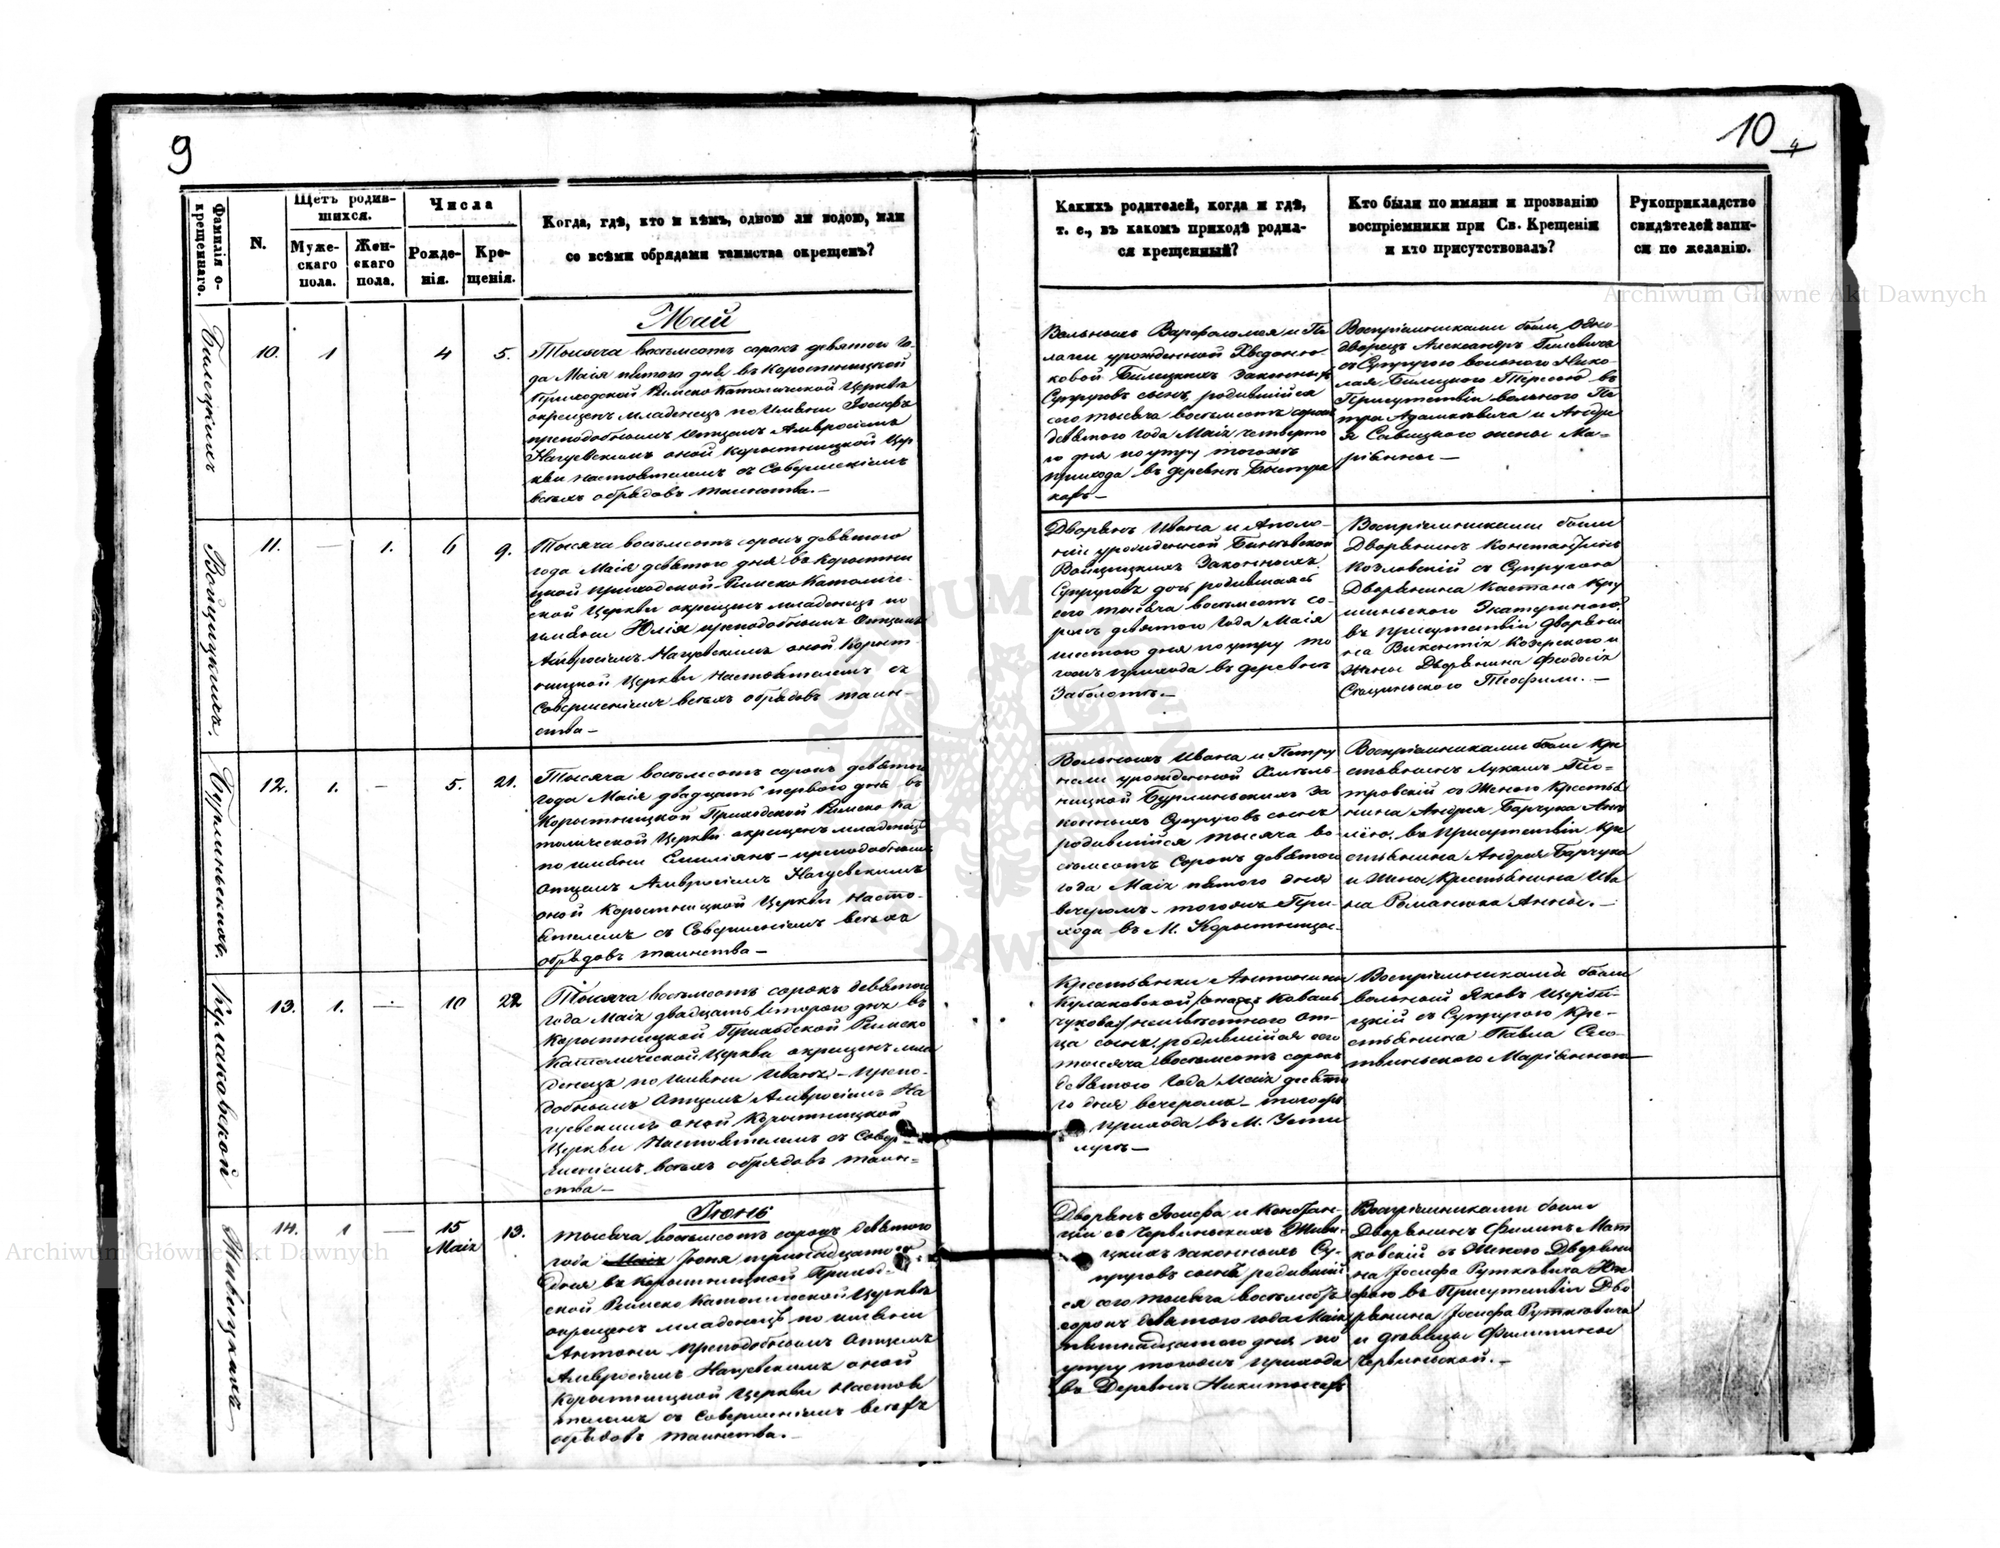 9
10
4
Фамилія о-
крещеннаго.
N.
Щетъ родив-
шихся.
Муже-
скаго
пола.
Жен-
скаго
пола.
Числа
Рожде-
нія.
Кре-
щенія.
Когда, гдѣ, кто и кѣмъ, одною ли водою, или
со всѣми обрядами таинства окрещенъ?
Какихъ родителей, когда и гдѣ,
т. е., въ какомъ приходѣ родил-
ся крещенный?
Кто были по имяни и прозванію
воспріемники при Св. Крещеніи
и кто присутствовалъ?
Рукоприкладство
свидѣтелей запи-
си по желанію.
Май
Билецкихъ
10.
1
4
5.
Тысяча восьмсотъ сорокъ девятого Го-
да Маія пятого дня въ Коростницкой
Приходской Римско Католической Церквѣ
окрещенъ младенецъ по имени Іосифъ
преподобнымъ Отцемъ Амвросіемъ
Нагуевскимъ оной Коростницкой Цер
кви настоятелемъ съ Совершеніемъ
всѣхъ обрядовъ таинства.—
Вольныхъ Варфоломея и Пе
лагеи урожденной
ковой Билецкихъ Законныхъ
Супруговъ сынъ, родившійся
сего тысяча восьмсотъ сорокъ
девятого года Маія четверто
го дня по утру тогожъ
прихода въ деревнѣ Быстра
кахъ—
Воспріемниками были Одно-
дворецъ Александръ
съ Супругою вольного Нико-
лая Билецкого Терезою въ
Присутствіи вольного Пе
тра Адамковича и Андре
я Савицкого жены Ма=
ріанны—
Войцицкихъ.
11.
—
1.
6
9.
Тысяча восьмсотъ сорокъ девятого
года Маія девятого дня въ Коростни
цкой приходской Римско Католиче-
ской Церкви окрещенъ младенецъ по
имени Юлія преподобнымъ Отцемъ
Амвросіемъ Нагуевскимъ оной Корост-
ницкой Церкви Настоятелемъ съ
Совершеніемъ всѣхъ обрядовъ таин-
ства—
Дворянъ Ивана и Аполо-
ніи урожденной
Войцицкихъ Законныхъ
Супруговъ дочь родившаяся
сего тысяча восьмсотъ со-
рокъ девятого Года Маія
шестого дня по утру то
гожъ прихода въ деревнѣ
Заболотьѣ.—
Воспріемниками были
Дворянинъ Константинъ
Козловскій съ Супругою
Дворянина Каетана Кру
шиньского Екатериною
въ присутствіи Дворяни
на Викентія Козерского и
жены Дворянина Феодосія
Теофили.—
Бурлиньскихъ.
12.
1.
—
5.
21.
Тысяча восьмсотъ сорокъ девятого
года Маія двадцать первого дня въ
Коростницкой Приходской Римско Ка
толической Церкви окрещенъ младенецъ
по имени Емиліянъ—преподобнымъ
Отцемъ Амвросіемъ Нагуевскимъ
оной Коростницкой Церкви Насто-
ятелемъ съ Совершеніемъ всѣхъ
обрядовъ таинства—
Вольныхъ Ивана и Петру
нели урожденной Хмѣль-
ницкой Бурлиньскихъ За
конныхъ Супруговъ сынъ
родившійся тысяча во-
сьмсотъ Сорокъ девятого
года Маія пятого дня
вечеромъ—тогожъ При-
хода въ М. Коростницы—
Воспріемниками были Кре
стьянинъ Лукашъ Пио-
тровскій съ Женою Крестья
нина Андрея Барчука Анъ
въ присутствіи Кре
стьянина Андрея Барчука
и Жены Крестьянина Ива
на Романюка Анны.—
Кулаковской
13.
1.
—
10
22
Тысяча восьмсотъ сорокъ девятого
года Маія двадцать Второго дня въ
Коростницкой Приходской Римско
Католической Церкви окрещенъ мла
денецъ по имени Иванъ—препо-
добнымъ Отцемъ Амвросіемъ На
гуевскимъ оной Коростницкой
Церкви Настоятелемъ съ Совер-
шеніемъ всѣхъ обрядовъ таин=
ства—
Крестьянки Антонины
Кулаковской
неизвѣстного От-
ца сынъ, родившійся сего
тысяча восьмсотъ сорокъ
девятого Года Маія десято
го дня вечеромъ—тогожъ
прихода въ М. Усти
лугѣ—
Воспріемниками были
вольный Яковъ
цкій съ Супругою Кре-
стьянина Павла
Маріянною—
Іюнь
Живицкихъ
14.
1
—
15
Маія
13.
тысяча восьмсотъ сорокъ девятого
года Маія Іюня тринадцатого
дня въ Коростницкой Приход-
ской Римско Католической Церквѣ
окрещенъ младенецъ по имени
Антони преподобнымъ Отцемъ
Амвросіемъ Нагуевскимъ оной
Коростницкой Церкви Настоя
телемъ съ Совершеніемъ всѣхъ
обрядовъ таинства.—
Дворянъ Іосифа и Констан-
ціи съ Червиньскихъ Живи-
цкихъ законныхъ Су-
пруговъ сынъ родившій
ся сего тысяча восьмсотъ
сорокъ девятого года Маія
пятнадцатого дня по
утру тогожъ прихода
въ Деревнѣ Никитычахъ
Воспріемниками были
Дворянинъ Филипъ Мат
ковскій съ Женою Дворяни
на Іосифа Рутковича
въ Присутствіи Дво
рянина Іосифа Рутковича
и дѣвицы Филипины
Червиньской.—
Archiwum Główne Akt Dawnych
Archiwum Główne Akt Dawnych